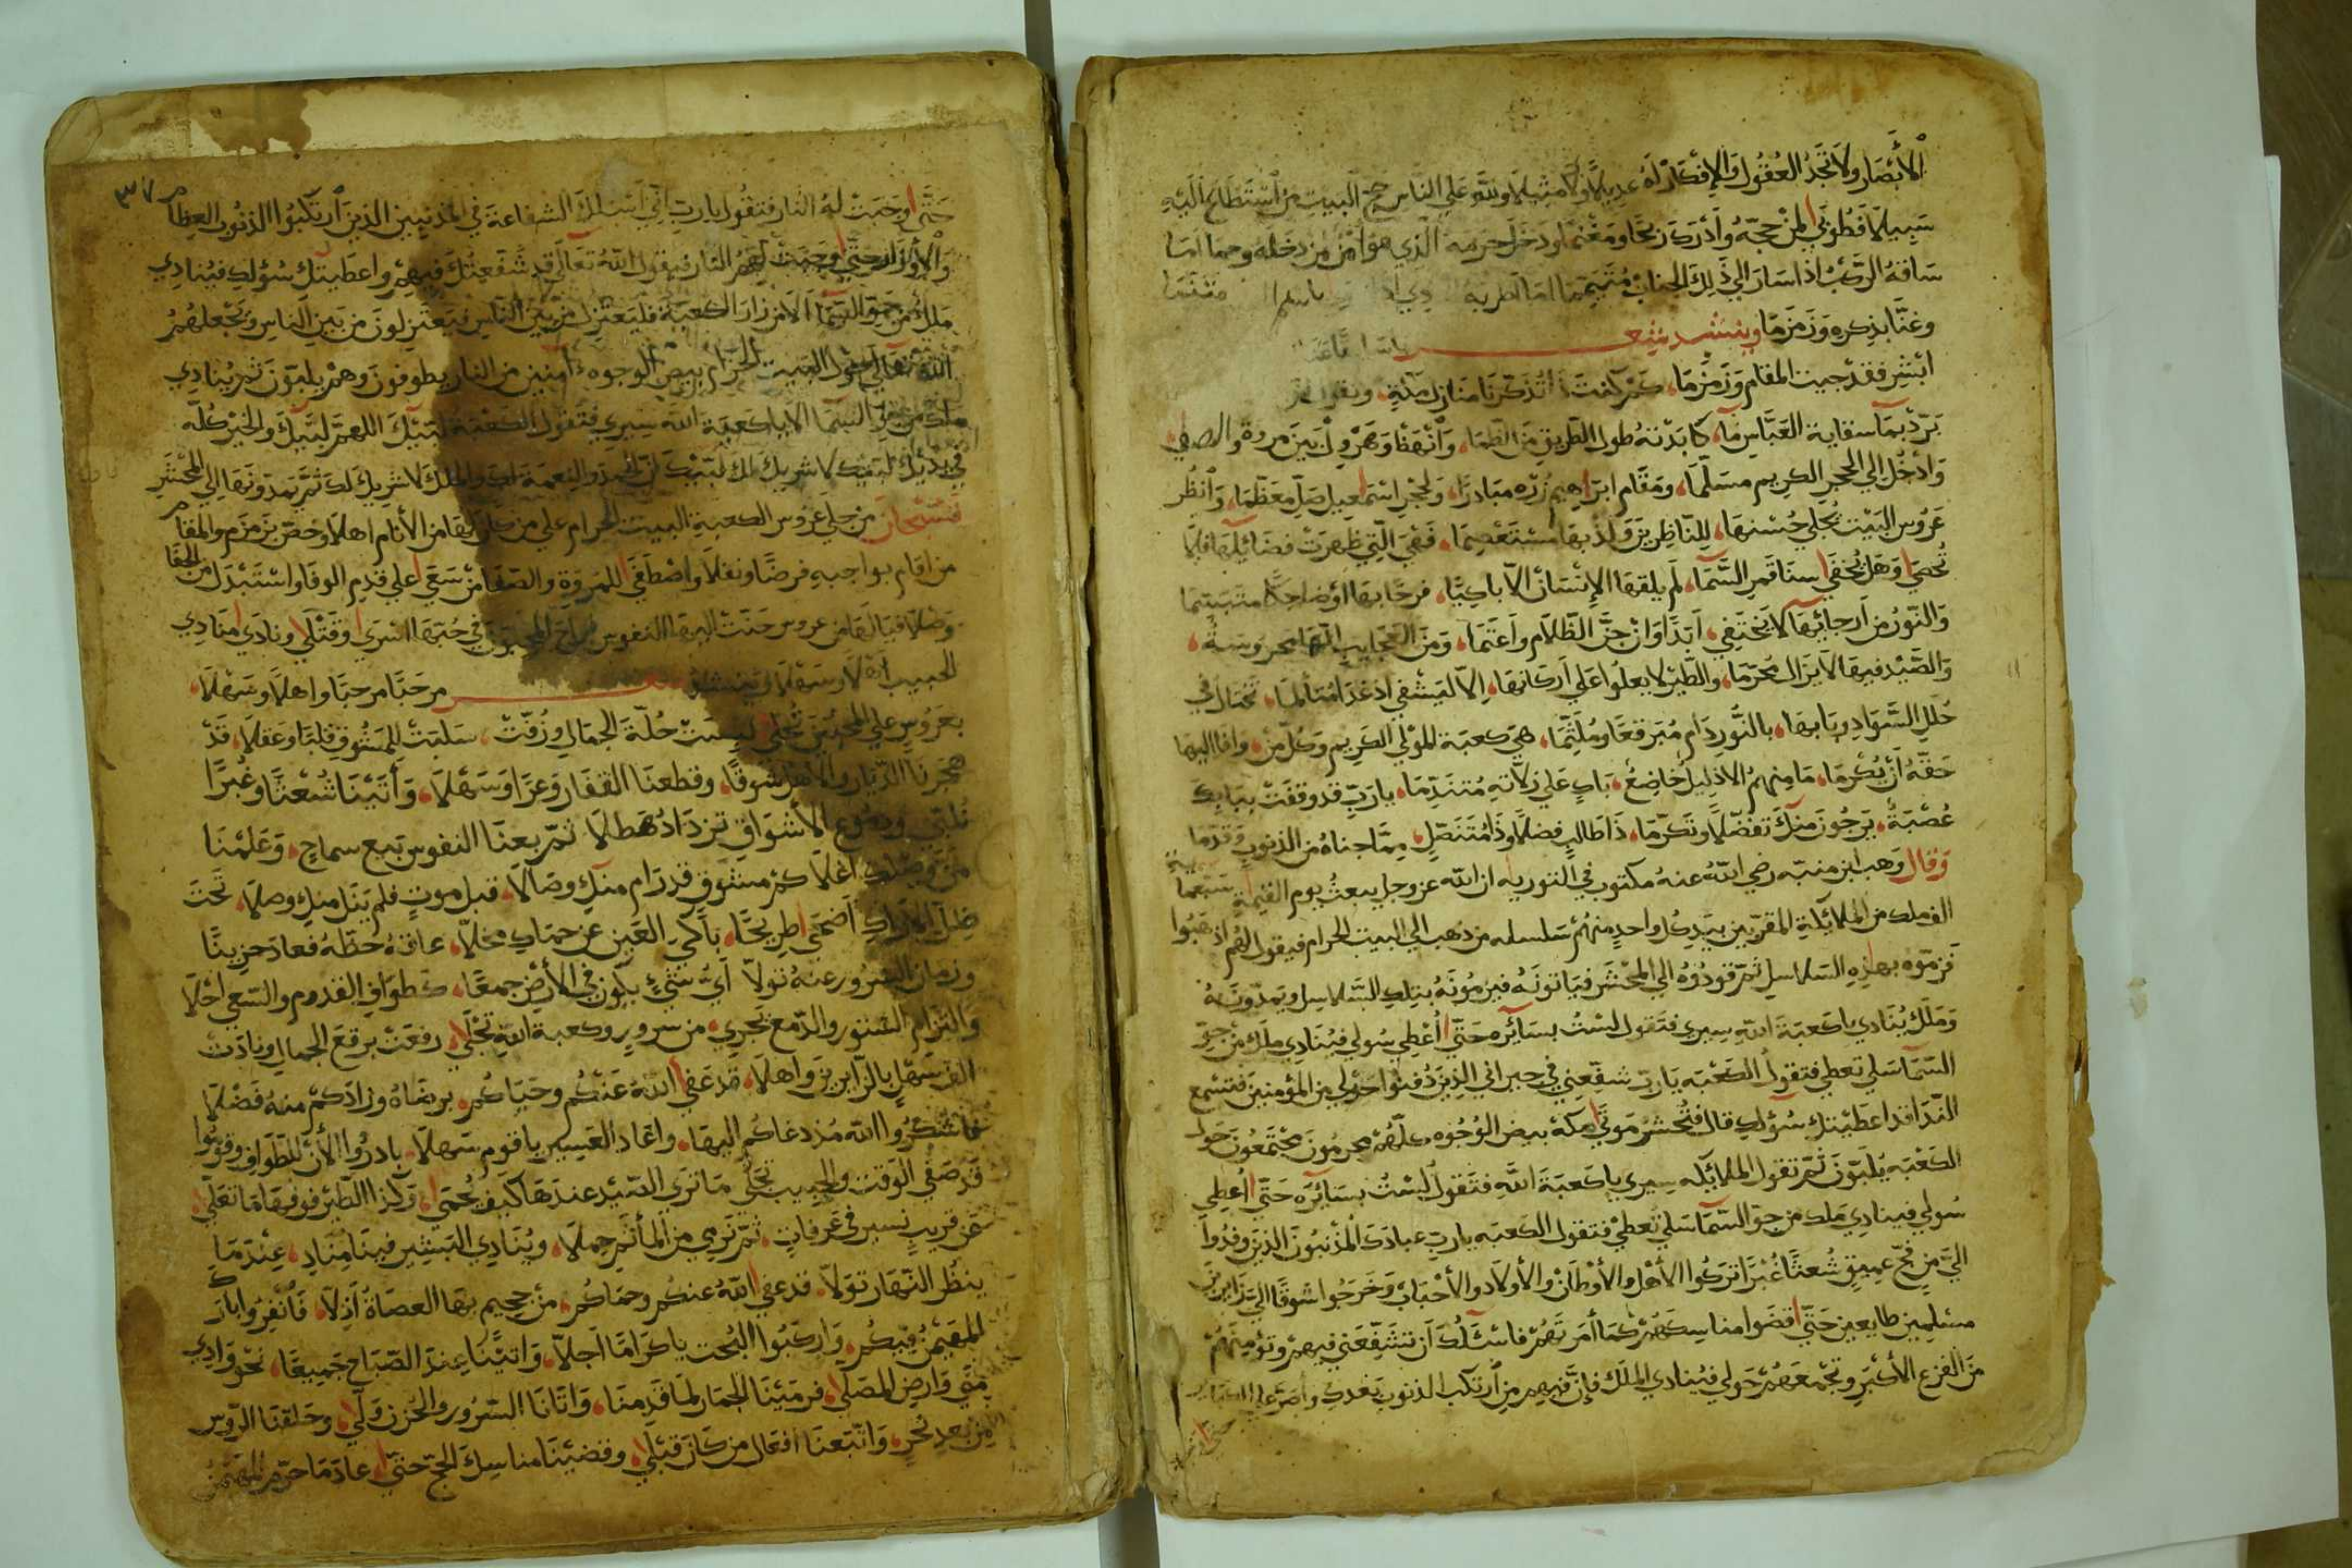 الأبصار ولا تجد العقول والافكار له عديلا ولا مثيلا ولله على الناس حج البيت من استطاع اليه
سبيلا فطوبي لمن حجه وأدرك ربحا ومغنما ودخل حرمه الذي هو امن من دخله وحما اما
ساقه الركب اذا سار الي ذلك الجناب متيمما اما لطربه
وغنا بذكره وزمزما وينشد شعر
ابشر فقد جيت المقام وزمزما، كم كنت تذكرنا منازل مكة، وتقول
برد بما سقاية العباس ما، كابدته طول الطريق من الظما، وانهظ وهرول بين مروة والصفي،
وادخل الي الحجر الكريم مسلما، ومقام ابراهيم زره مبادرا، ولحجر اسمعيل صل معظما، وانظر
عروس البيت تجلي حسنها، للناظرين ولذ بها مستعصما، فهي التي ظهرت فضائلها فلا
تحصي وهل تخفي سنا قمر السما، لم يلقها الإنسان الا باكيا، فرحا بها او ضاحكا متبسما
والنور من أرجائها لا يختفي، ابدا وان جن الظلام واعتما، ومن العجايب انها محروسة،
والصيد فيها لا يزال محرما، والطير لا يعلوا علي اركانها، الا ليشفي اذ غدا متألما، تختال في
حلل السواد وبابها، بالنور دام مبرقعا وملثما، هي كعبة المولي الكريم وكل من، وافا اليها
حقه أن يكرما، ما منهم الا ذليل خاضع، باك علي زلاته متندما، يارب قد وقفت ببابك
عصبة، يرجون منك تفضلا وتكرما، ذا طالب فضلا وذا متنصل، مما جناه من الذنوب وقدما
وقال وهب ابن منبه رضي الله عنه مكتوب في التوريه ان الله عز وجل يبعث يوم القيمة سبعماية
الف ملك من الملائكة المقربين بيد كل واحد منهم سلسله من ذهب الي البيت الحرام فيقول لهم اذهبوا
فزموه بهذه السلاسل ثم قودوه الي المحشر فياتونه فيزمونه بتلك السلاسل ويمدونه
وملك ينادي يا كعبة الله سيري فتقول لست بسائره حتي أعطي سولي فينادي ملك من جو
السما سلي تعطي فتقول الكعبه يارب شفعني في جيراني الذين دفنوا حولي من المؤمنين فتسمع
الندا قد اعطيتك سؤلك قال فتحشر موتي مكة بيض الوجوه كلهم محرمون مجتمعون حول
الكعبه يلبون ثم تقول الملائكه سيري يا كعبة الله فتقول لست بسائره حتي أعطي
سولي فينادي ملك من جو السما سلي تعطي فتقول الكعبه يارب عبادك المذنبون الذين وفدوا
الي من فج عميق شعثا غبرا تركوا الأهل والأوطان والأولاد والأحباب وخرجوا شوقا الي زايرين
مسلمين طايعين حتي قضوا مناسكهم كما أمرتهم فاسئلك أن تشفعني فيهم وتؤمنهم
من الفزع الأكبر وتجمعهم حولي فينادي الملك فإن فيهم من ارتكب الذنوب بعدك واصر علي الكباير
٣٧
حتي وجبت له النار فتقول يارب اني اسئلك الشفاعة في المذنبين الذين ارتكبوا الذنوب العظام
والأوزار حتي وجبت لهم النار فيقول الله تعالي قد شفعتك فيهم واعطيتك سؤلك فينادي
ملك من جو السما ألا من زار الكعبة فليعتزل من بين الناس فيعتزلون من بين الناس ويجعلهم
الله تعالي حول البيت الحرام بيض الوجوه آمنين من النار يطوفون وهم يلبون ثم ينادي
ملك من جو السما الا يا كعبة الله سيري فتقول الكعبة لبيك اللهم لبيك والخير كله
في يديك لبيك لا شريك لك لبيك ان الحمد والنعمة لك والملك لا شريك لك ثم يمدونها الي المحشر
فسبحان من جلي عروس الكعبة البيت الحرام علي من كان لها من الأنام اهلا وخص بزمزم والمقام
من اقام بواجبه فرضا ونفلا واصطفي للمروة والصفا من سعي علي قدم الوفا واستبدل من الجفا
وصلا فيالها من عروس حنت اليها النفوس وراح المحبون في حبها اسري وقتلي ونادي منادي
الحبيب اهلا وسهلا وينشد شعر مرحبا مرحبا واهلا وسهلا،
بعروس علي المحبين تجلي لبست حلة الجمال وزفت، سلبت للمشوق قلبا وعقلا، قد
هجرنا الديار والاهل شوقا، وقطعنا القفار وعرا وسهلا، وأتينا شعثا وغبرا
نلبي ودموع الأشواق تزداد هطلا ثم بعنا النفوس بيع سماح، وعلمنا
من وصلك اغلا كم مشوق قد رام منك وصالا، قبل موت فلم ينل منك وصلا، تحت
ظل الاراك أضحي طريحا، باكي العين عن حماك مخلا، عاقه حظه فعاد حزينا
وزمان السرور عنه تولا أي شيء يكون في الأرض جمعا، كطواف القدوم والسعي احلا
والتزام الستور والدمع يجري، من سرور وكعبة الله تجلي، رفعت برقع الجمال ونادت
الف سهل بالزايرين واهلا، قد عفي الله عنكم وحباكم، برضاه وزادكم منه فضلا
فاشكروا الله مذ دعاكم اليها، واعاد العسير يا قوم سهلا، بادروا الأن للطواف وقوموا
قد صفي الوقت والحبيب تجلي ما تري الصيد عندها كيف يحمي، وكذا الطير فوقها ما تعلي،
عن قريب نسير في عرفات، ثم نرمي من المأثم حملا، وينادي البشير فينا مناد، عندما
ينظر النهار تولا، قد عفي الله عنكم وحماكم، من جحيم بها العصاة أذلا، فانفروا بارك
المهيمن فيكم، واركبوا البخت يا كراما أجلا، واتينا عند الصباح جميعا، نحو وادي
مني وارض المصلي، فرمينا الجمار لما قدمنا، واتانا السرور والحزن ولي، وحلقنا الروس
من بعد نحر، واتبعنا افعال من كان قبلي، وقضينا مناسك الحج حتي، عاد ما حرم المهيمن